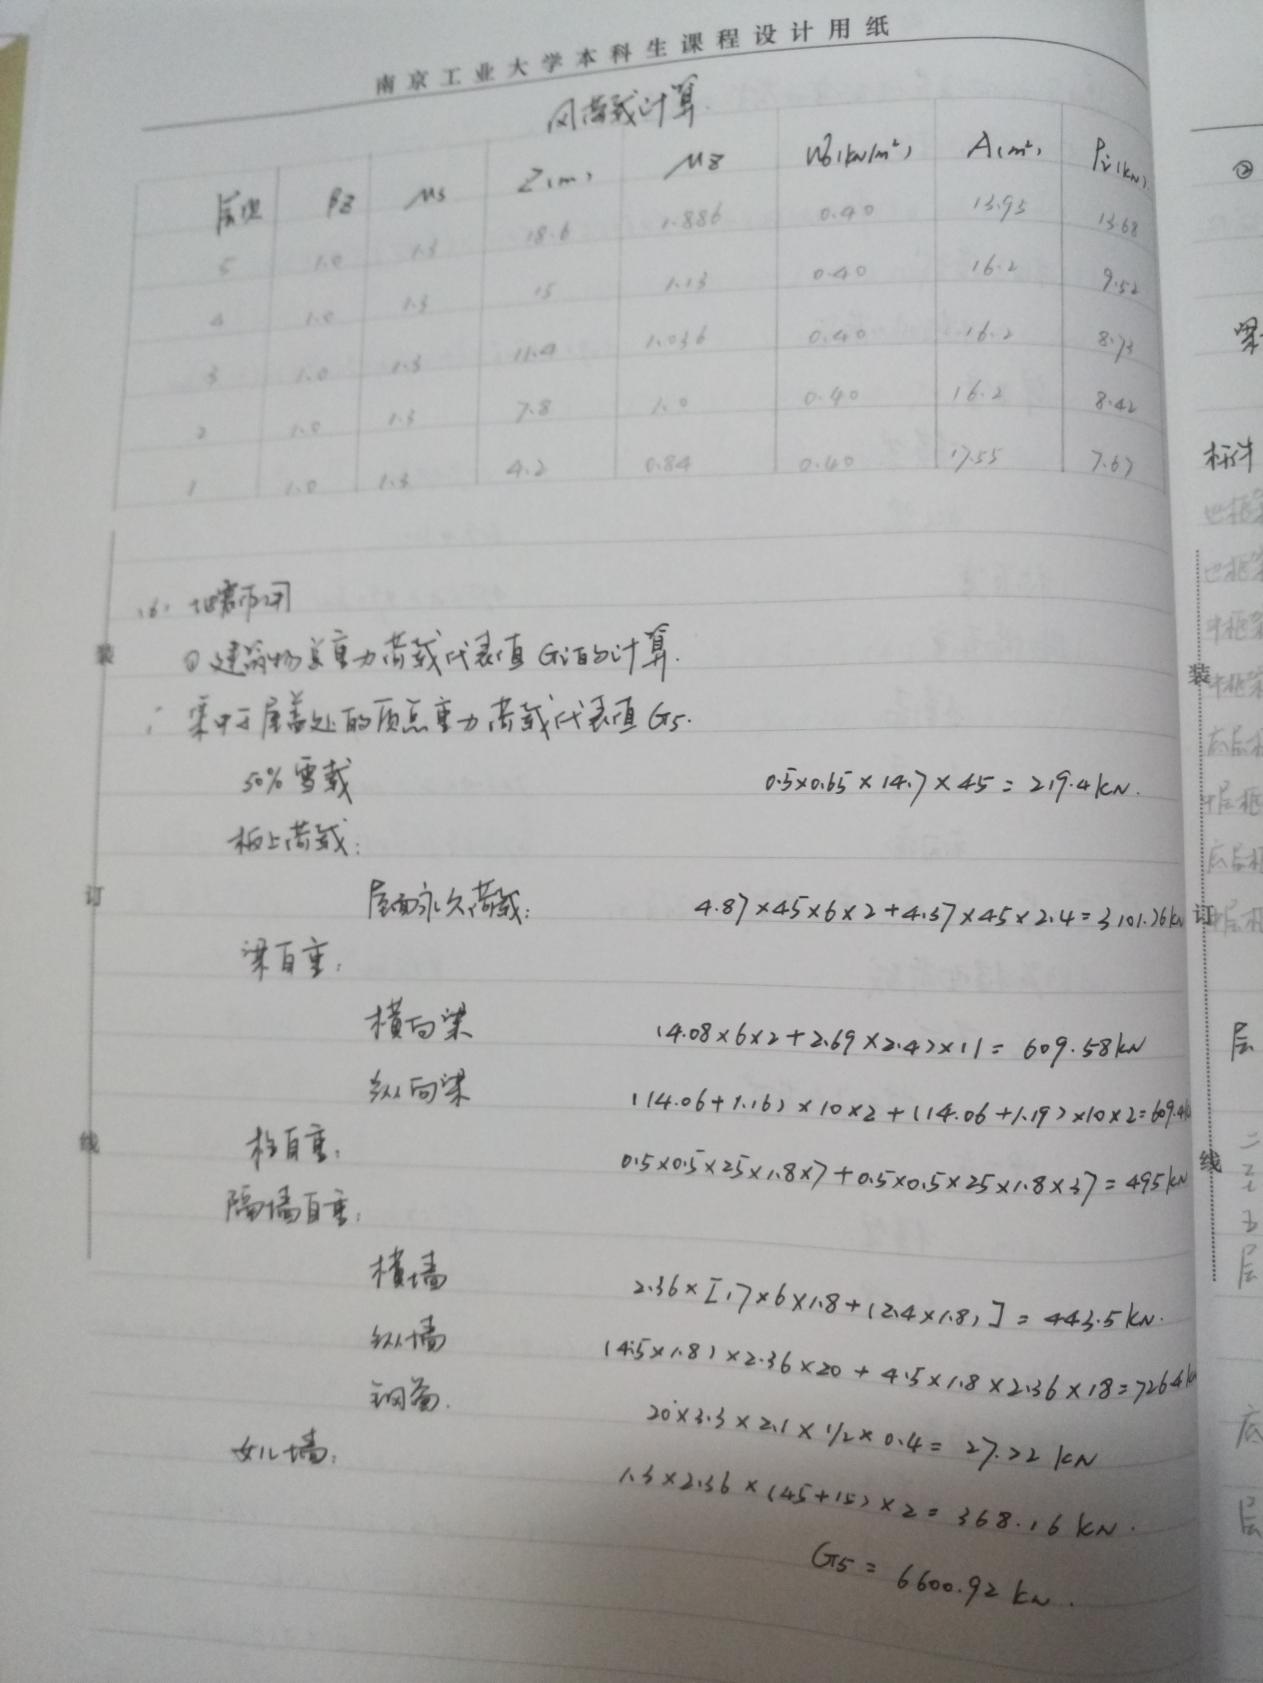 南京工业大学本科生课程设计用纸
风荷载计算.
层次 βz μs Z(m) μz W0(kN/m²) A(m²) Pi(kN)
5 1.0 1.3 18.6 1.886 0.40 13.95 13.68
4 1.0 1.3 15 1.13 0.40 16.2 9.52
3 1.0 1.3 11.4 1.036 0.40 16.2 8.73
2 1.0 1.3 7.8 1.0 0.40 16.2 8.42
1 1.0 1.3 4.2 0.84 0.40 17.55 7.67
(6)
① 建筑物总重力荷载代表值 Gi的计算.
集中于屋盖处的顶点重力荷载代表值G5.
50%雪载 0.5×0.65×14.7×45=219.4kN.
板上荷载:
屋面永久荷载: 4.87×45×6×2+4.37×45×2.4=3101.76kN
梁自重:
横向梁 (4.08×6×2+2.69×2.4)×11=609.58kN
纵向梁 (14.06+1.16)×10×2+(14.06+1.19)×10×2=609.4
柱自重: 0.5×0.5×25×1.8×7+0.5×0.5×25×1.8×37=495kN
隔墙自重:
横墙 2.36×[17×6×1.8+(2.4×1.8)]=443.5kN.
纵墙 (4.5×1.8)×2.36×20+4.5×1.8×2.36×18=726.4
钢窗. 20×3.3×2.1×1/2×0.4=27.22kN
女儿墙: 1.3×2.36×(45+15)×2=368.16kN.
G5=6600.92kN.
装
订
线
②
梁
层
底
层
装
订
线